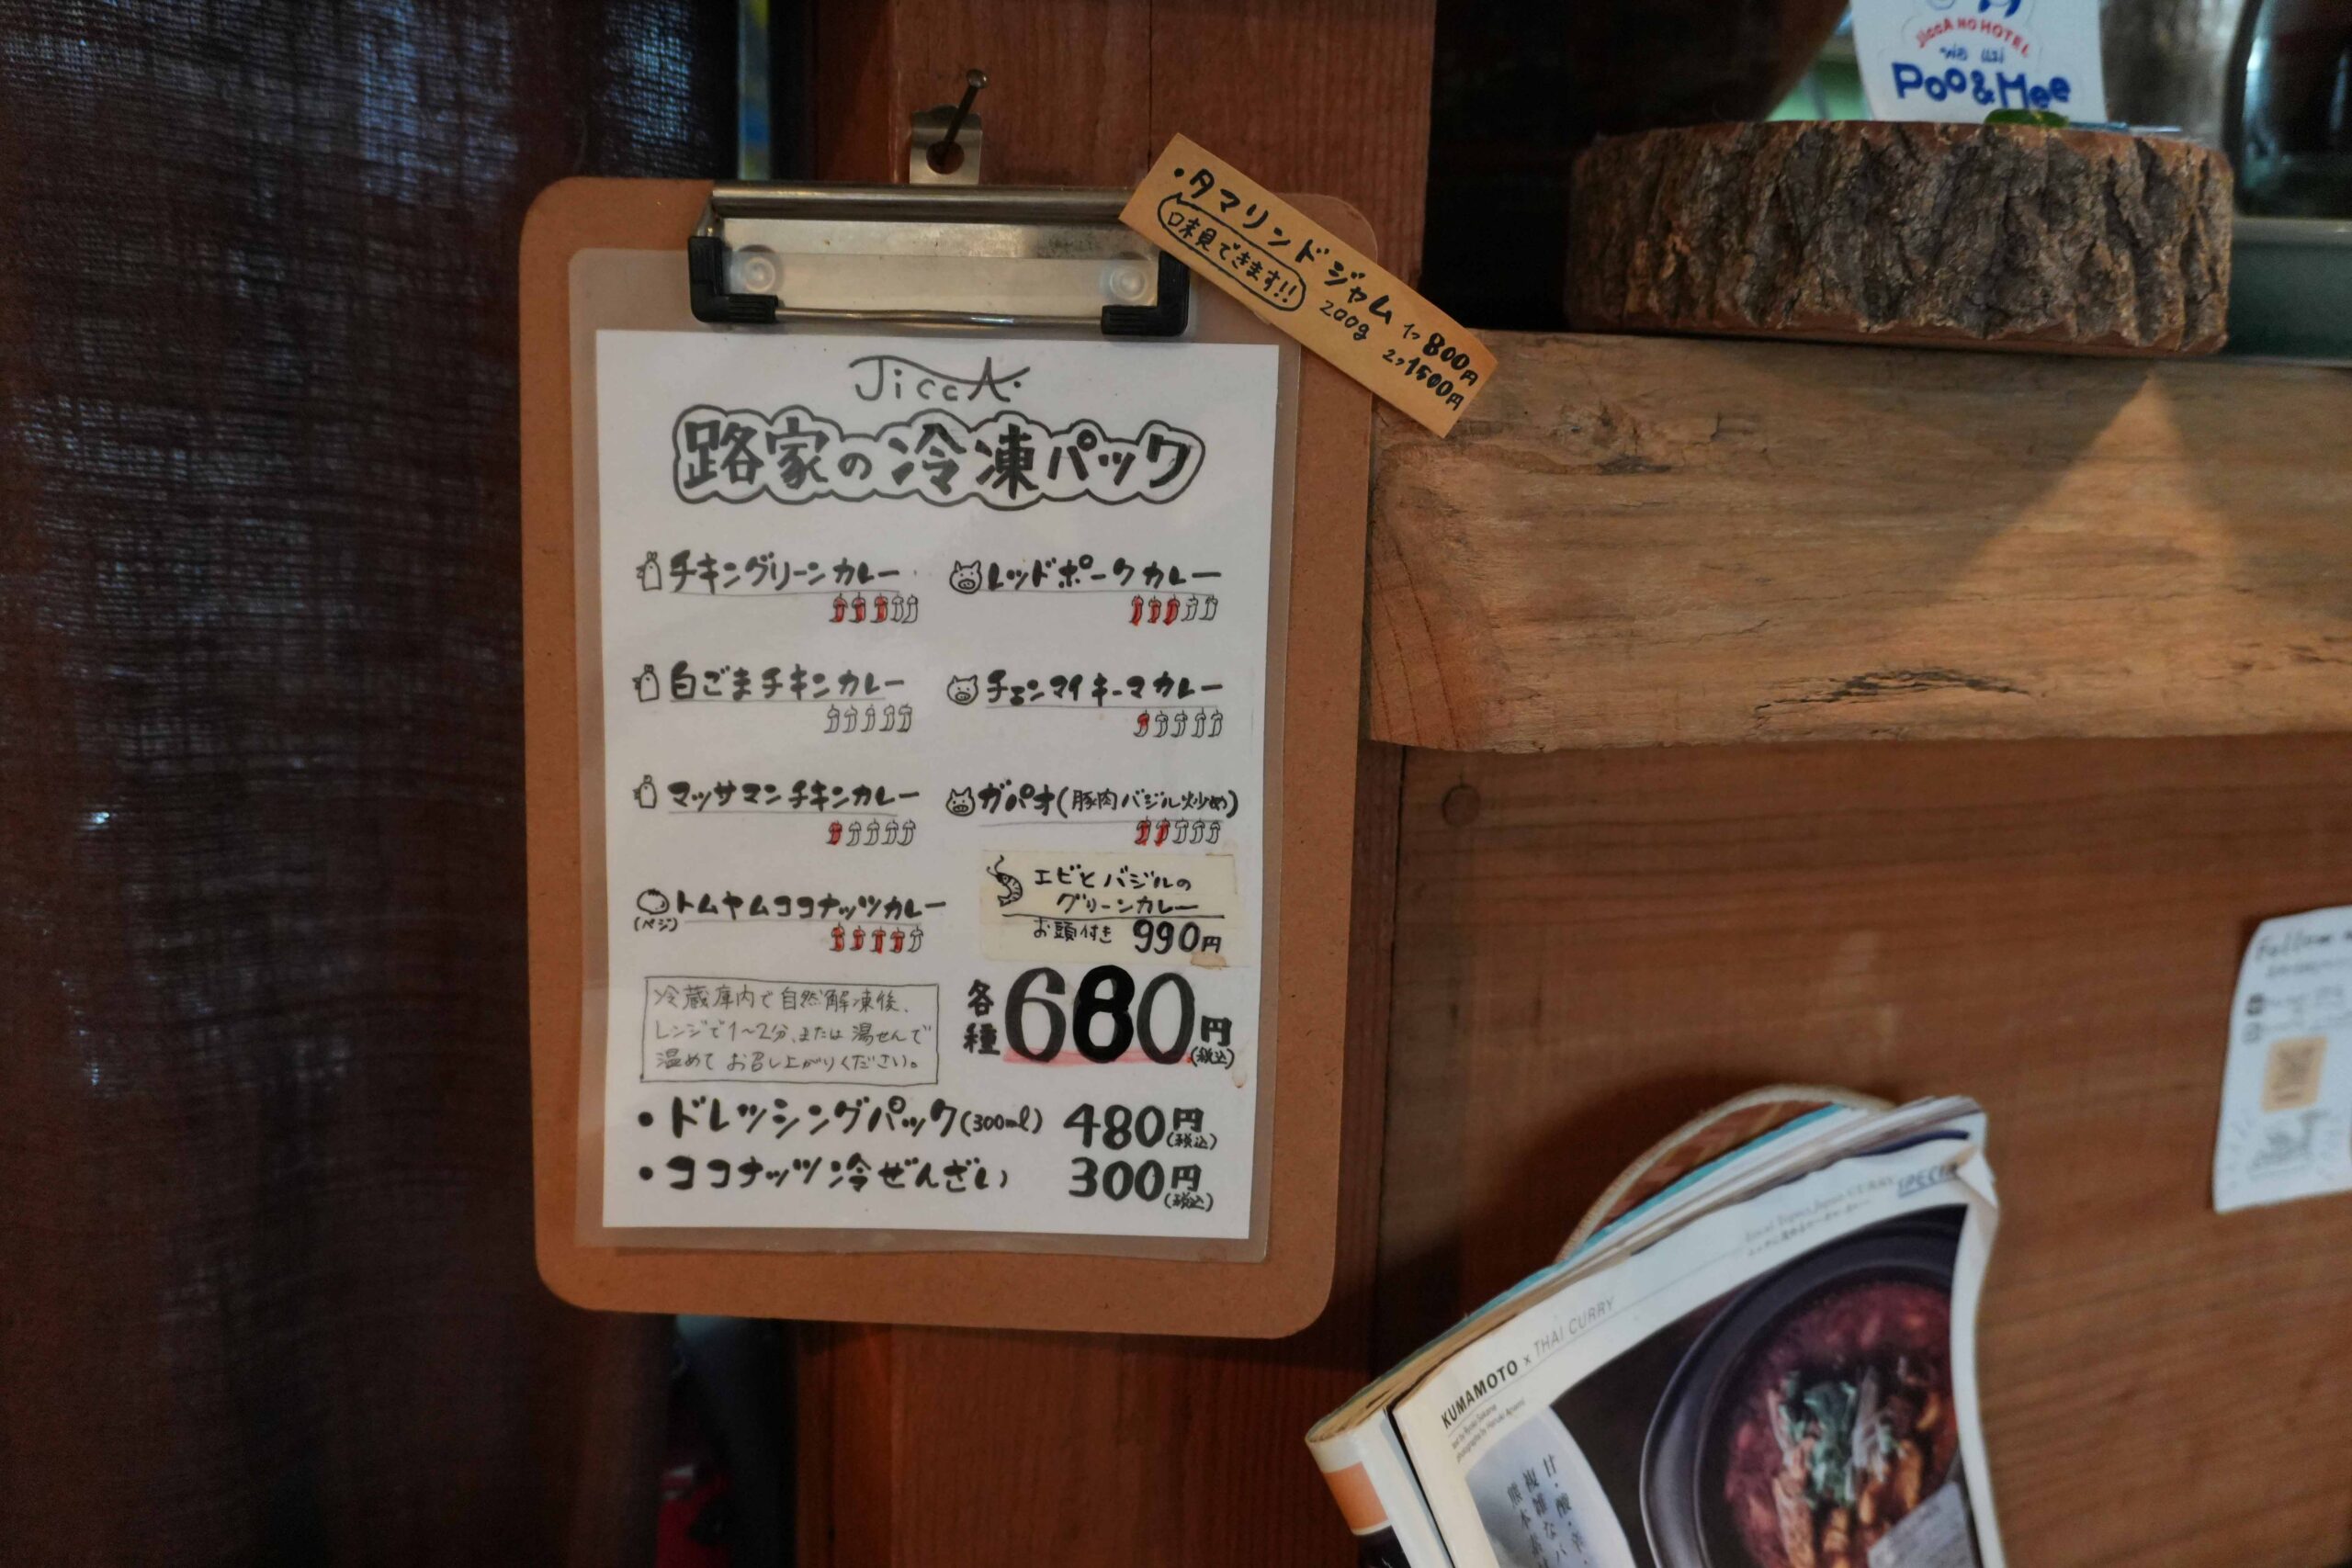 JiccA NO HOTEL
Poo&Mee
・タマリンドジャム
味見できます!!
200g
1つ800円
2つ1500円
JiccA.
路家の冷凍パック
チキングリーンカレー
レッドポークカレー
白ごまチキンカレー
チェンマイキーマカレー
マッサマンチキンカレー
ガパオ(豚肉バジル炒め)
トムヤムココナッツカレー
(ベジ)
エビとバジルの
グリーンカレー
お頭付き 990円
冷蔵庫内で自然解凍後、
レンジで1〜2分、または湯せんで
温めてお召し上がりください。
各種680円(税込)
・ドレッシングパック(300ml) 480円(税込)
・ココナッツ冷ぜんざい 300円(税込)
SPECIAL
KUMAMOTO x THAI CURRY